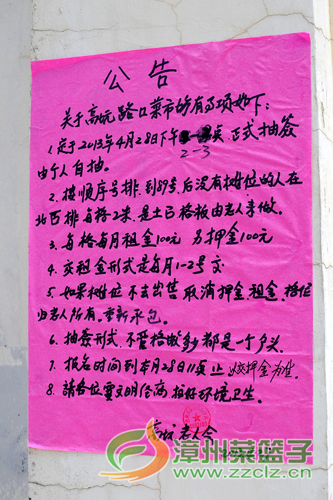 公告
关于高坑路口菜市场有事项如下：
1. 定于2013年4月28日下午2-3点正式抽签
由个人自抽。
2. 按顺序号排，到89号，后没有摊位的人在
北西排每格2米，是土己格板由老人来做。
3. 每格每月租金100元 另押金100元
4. 交租金形式是每月1-2号交
5. 如果摊位不去出售 取消押金、租金、格位
归老人所有，重新承包。
6. 抽签形式，不管格数多少都是一个户头。
7. 报名时间到本月28日11点止 交押金为准
8. 请各位要文明经商 搞好环境卫生。
高坑老人会
漳州菜篮子
www.zzclz.cn